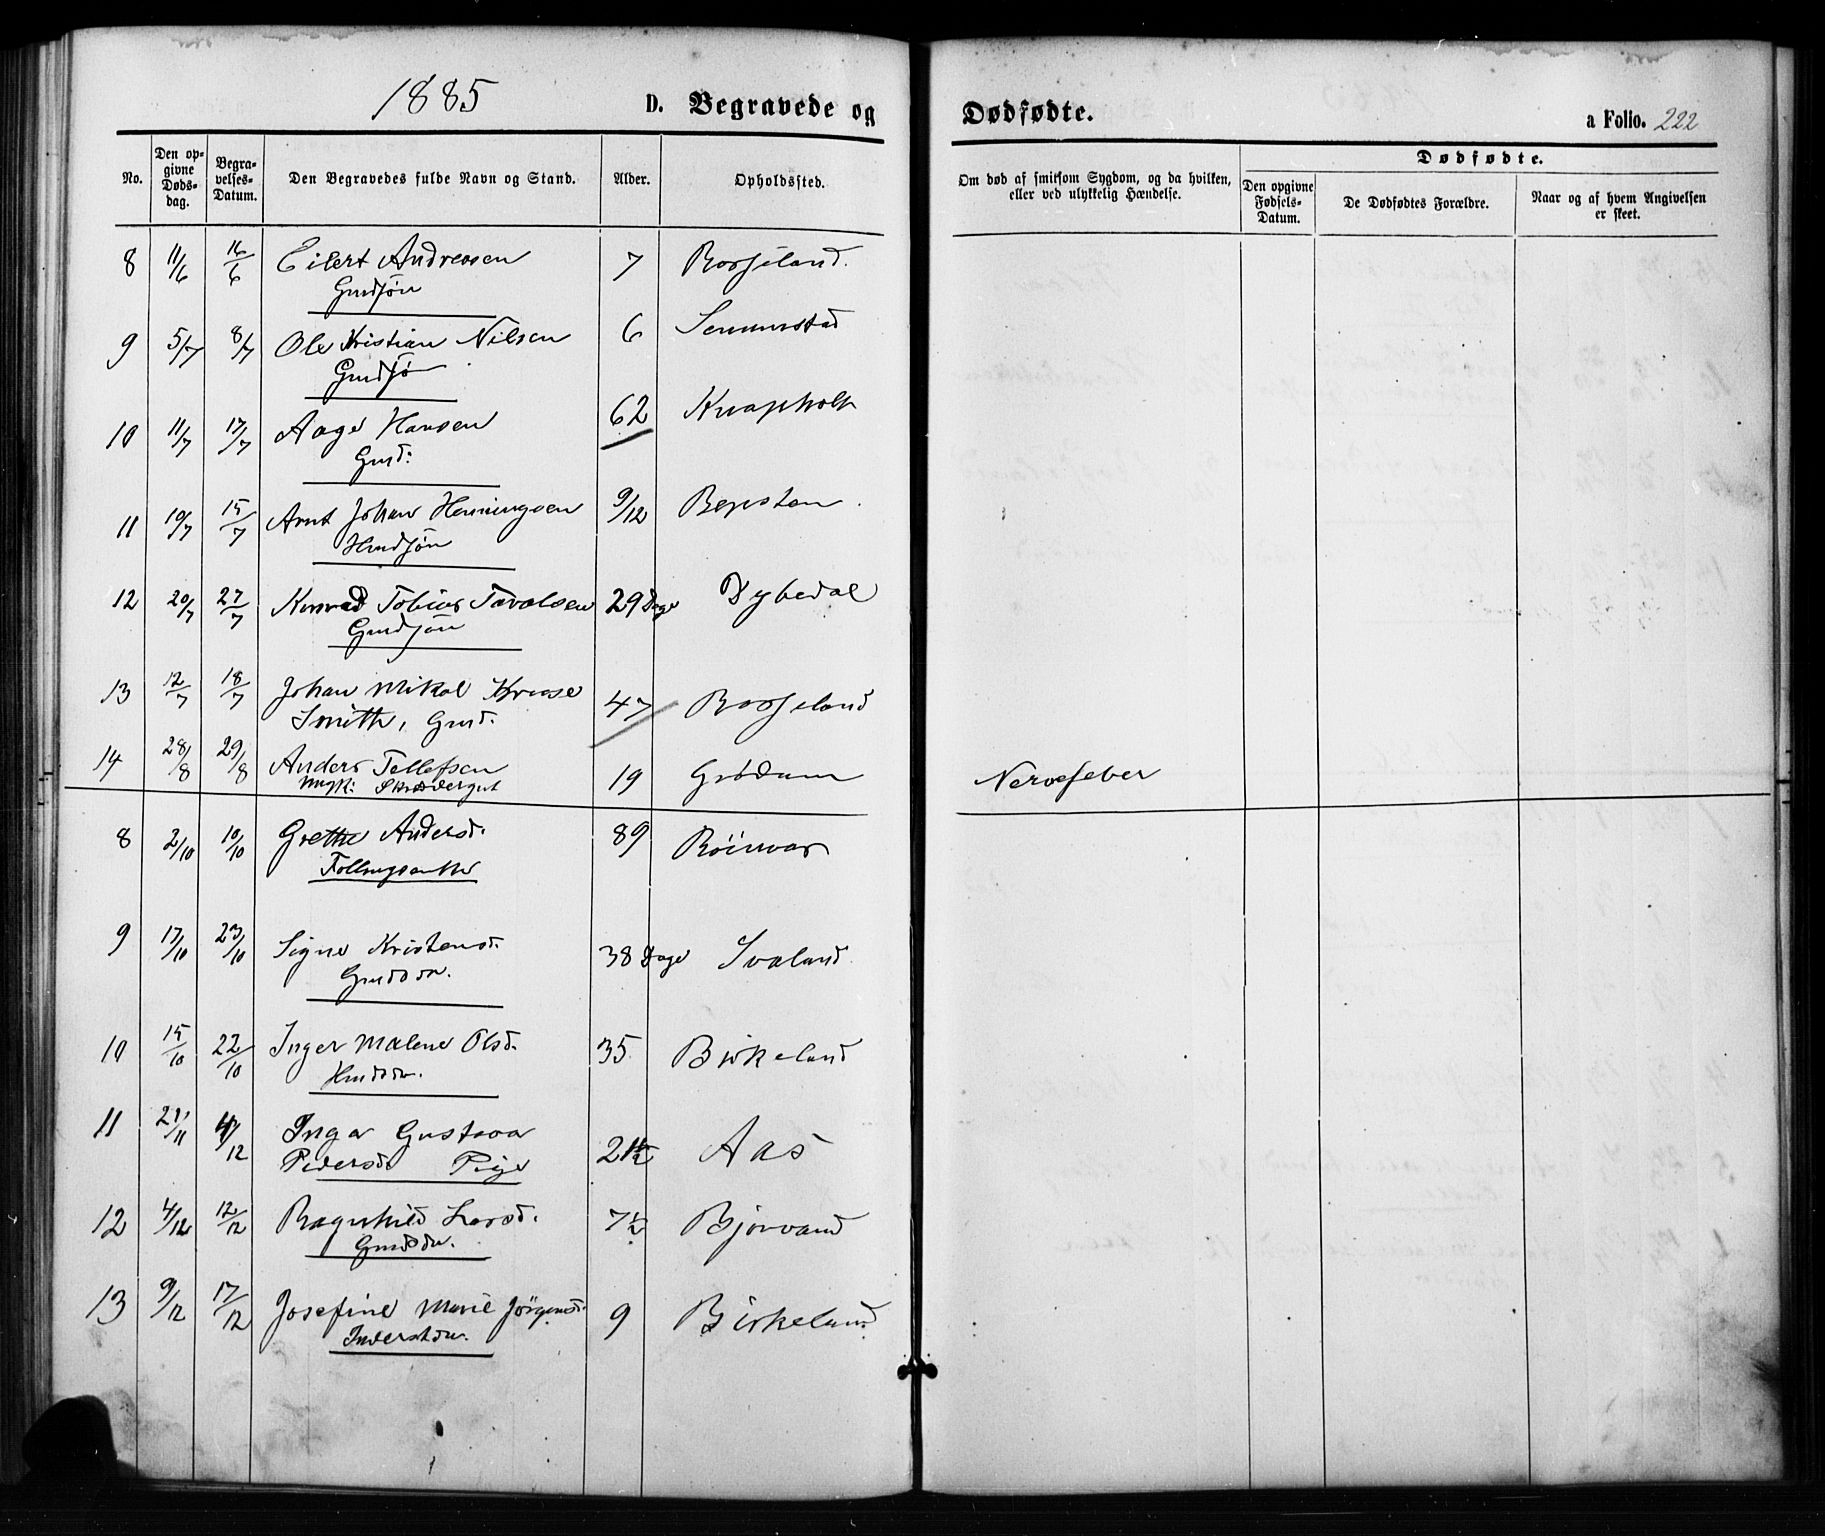 1885
D. Begravede og Dødfødte.
a Folio. 222
No.
Den opgivne Dødsdag.
Begravelses-Datum.
Den Begravedes fulde Navn og Stand.
Alder.
Opholdssted.
Om død af smitsom Sygdom, og da hvilken, eller ved ulykkelig Hændelse.
Dødfødte.
Den opgivne Fødsels-Datum.
De Dødfødtes Forældre.
Naar og af hvem Angivelsen er skeet.
8 11/6 16/6 Eilert Andresen 7 Rosseland.
Gmdsøn
9 5/7 8/7 Ole Kristian Nilsen 6 Senumstad
Gmdsøn
10 11/7 17/7 Aage Hansen 62 Knapholt
Gmd:
11 10/7 15/7 Arnt Johan Henningsen 9/12
Hmdsøn
12 20/7 27/7 Konrad Tobias Tavalsen 29 Dage Dybedal
Gmdsøn
13 12/7 18/7 Johan Mikal Kruse 47 Rosseland
Smith, Gmd.
14 28/8 29/8 Anders Tellefsen 19 Grødum Nervefeber
Ungk: Skræddergut
8 2/10 10/10 Grethe Andersd. 89 Röinvas
Føllingsenke
9 17/10 23/10 Signe Kristensd. 38 Dage Svaland
Gmddtr.
10 15/10 22/10 Inger Malene Olsd. 35 Birkeland
Hmddtr.
11 21/11 4/12 Inga Gustava 21½ Aas
Pedersd. Pige
12 4/12 12/12 Ragnhild Larsd. 7½ Bjorvand
Gmddtr.
13 9/12 17/12 Josefine Marie Jörgensd. 9 Birkeland
Inderstdtr.